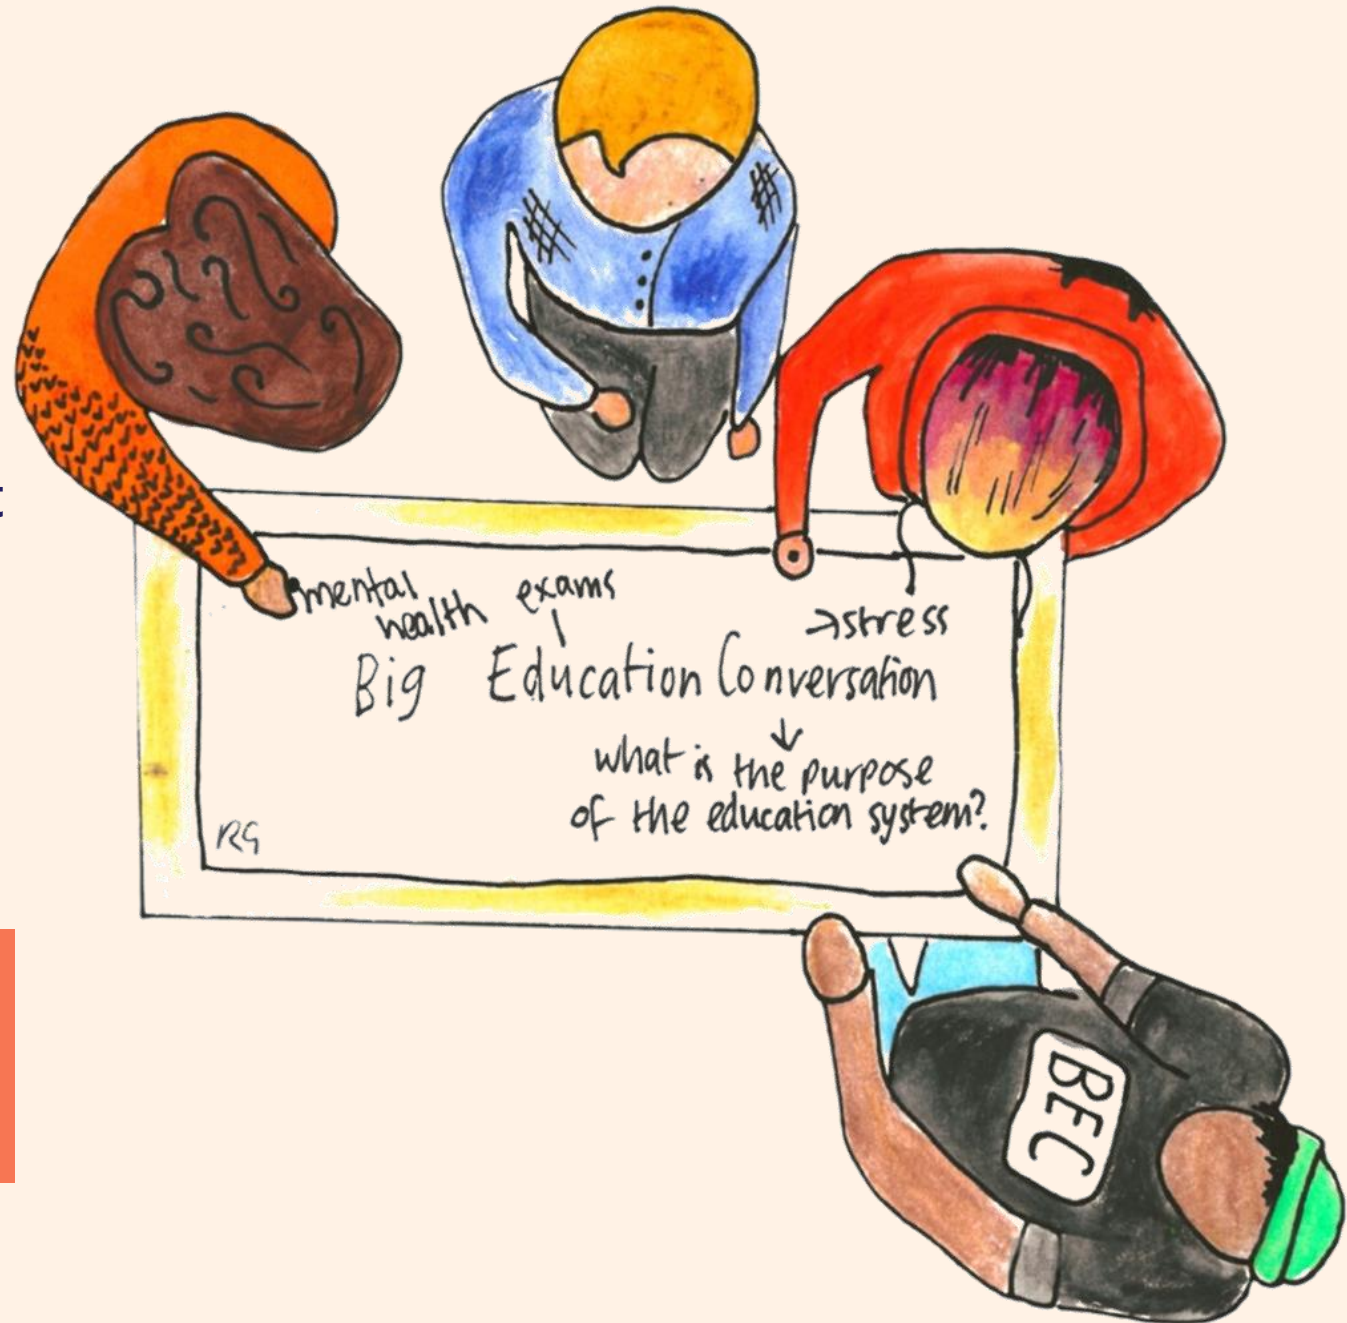 t
mental
health
exams
→stress
Big Education Conversation
↓
what is the purpose
of the education system?
RG
BEC